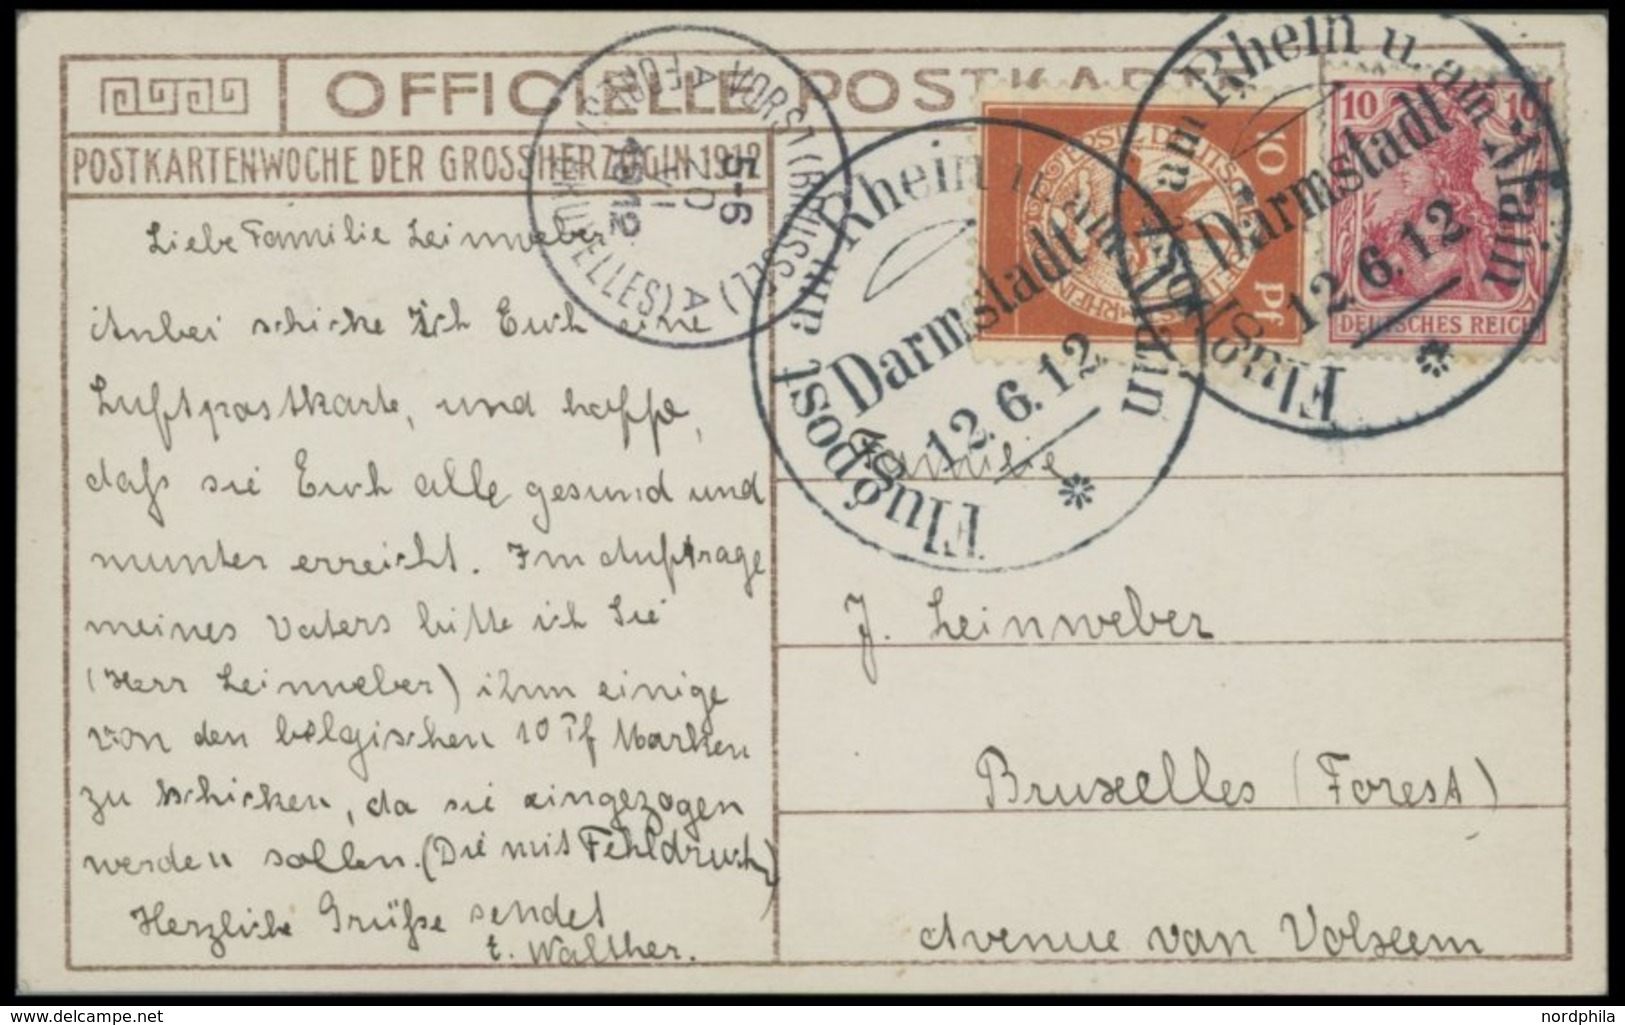 OFFICIELLE POSTKARTE
POSTKARTENWOCHE DER GROSSHERZOGIN 1912
Liebe Familie Leinweber
Anbei schicke Ich Euch eine
Luftpostkarte, und hoffe,
daß sie Euch alle gesund und
munter erreicht. Im Auftrage
meines Vaters bitte ich Sie
(Herr Leinweber) ihm einige
von den belgischen 10 Pf Marken
zu schicken, da sie eingezogen
werden sollen. (Die mit Fehldruck)
Herzliche Grüße sendet
t. Walther.
VORST (BRUSSEL) A
5-6
20
VI
1912
FOREST (BRUXELLES) A
Flugpost am Rhein u. am Main
Darmstadt
12.6.12
10 Pf
Flugpost am Rhein u. am Main
Darmstadt
12.6.12
10 10
DEUTSCHES REICH
Familie
J. Leinweber
Bruxelles (Forest)
Avenue van Volxem
delcampe.net
nordphila